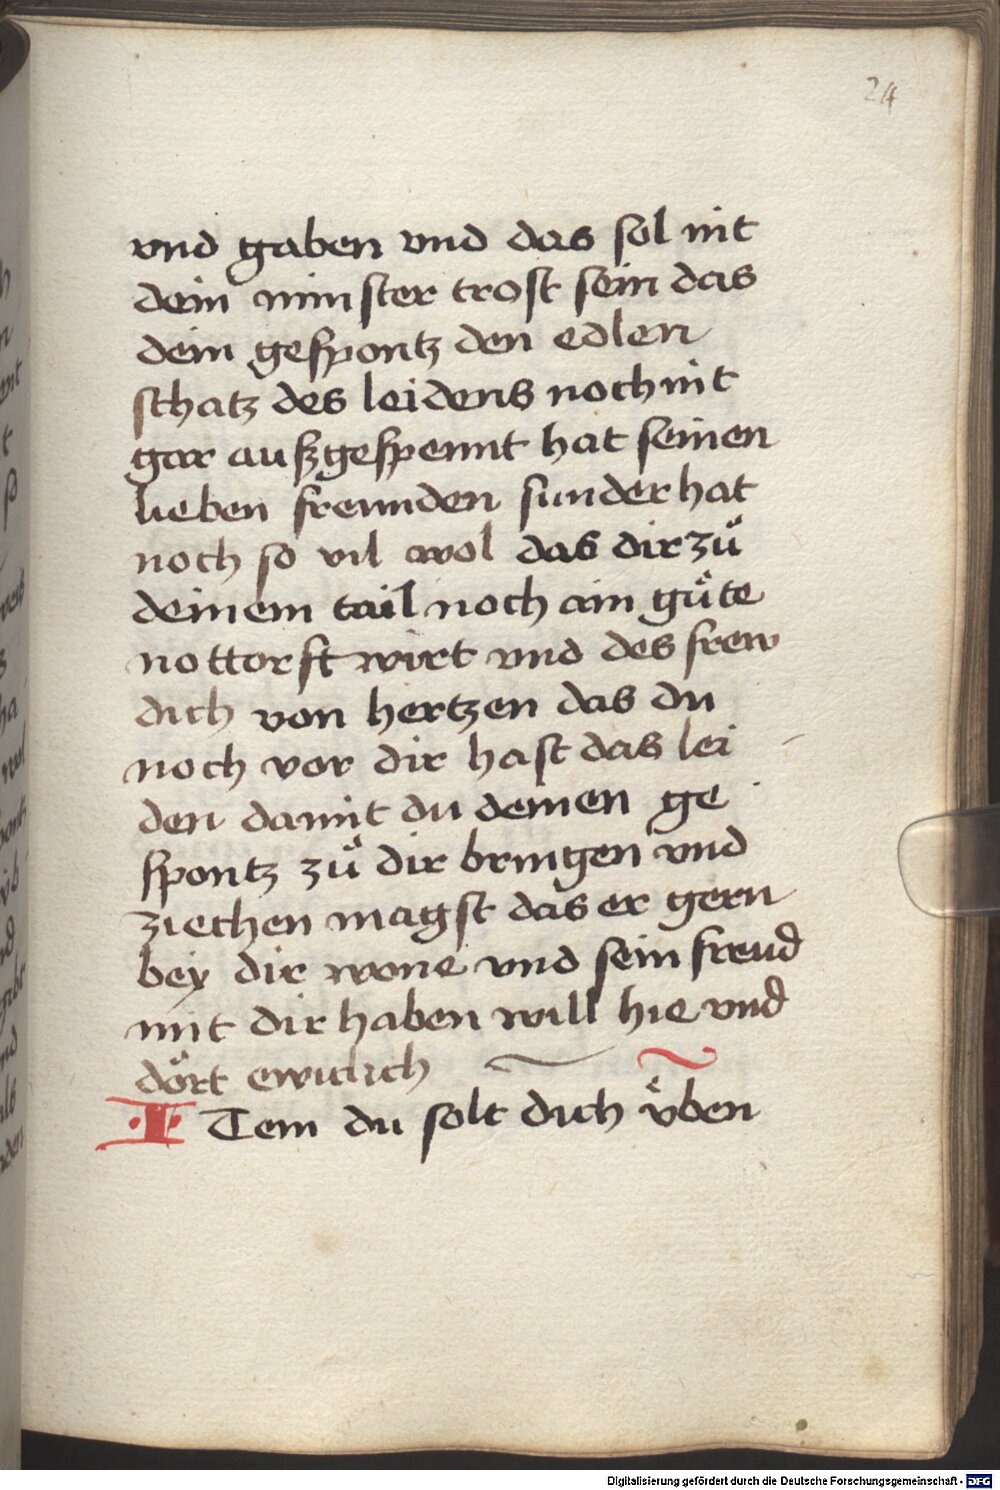 24
vnd gaben vnd das sol nit
dein minster trost sein das
dein gespontz den edlen
schatz des leidens noch nit
gar außgespennt hat seinen
lieben freunden sunder hat
noch so vil wol das dir zuͦ
deinem tail noch ain guͤte
nottorft wirt vnd des frew
dich von hertzen das du
noch vor dir hast das lei
den damit du deinen ge
spontz zuͦ dir bringen vnd
ziechen magst das er gern
bey dir wone vnd sein freud
mit dir haben will hie vnd
doͤrt ewiclich
I Tem du solt dich vͤben
Digitalisierung gefördert durch die Deutsche Forschungsgemeinschaft - DFG